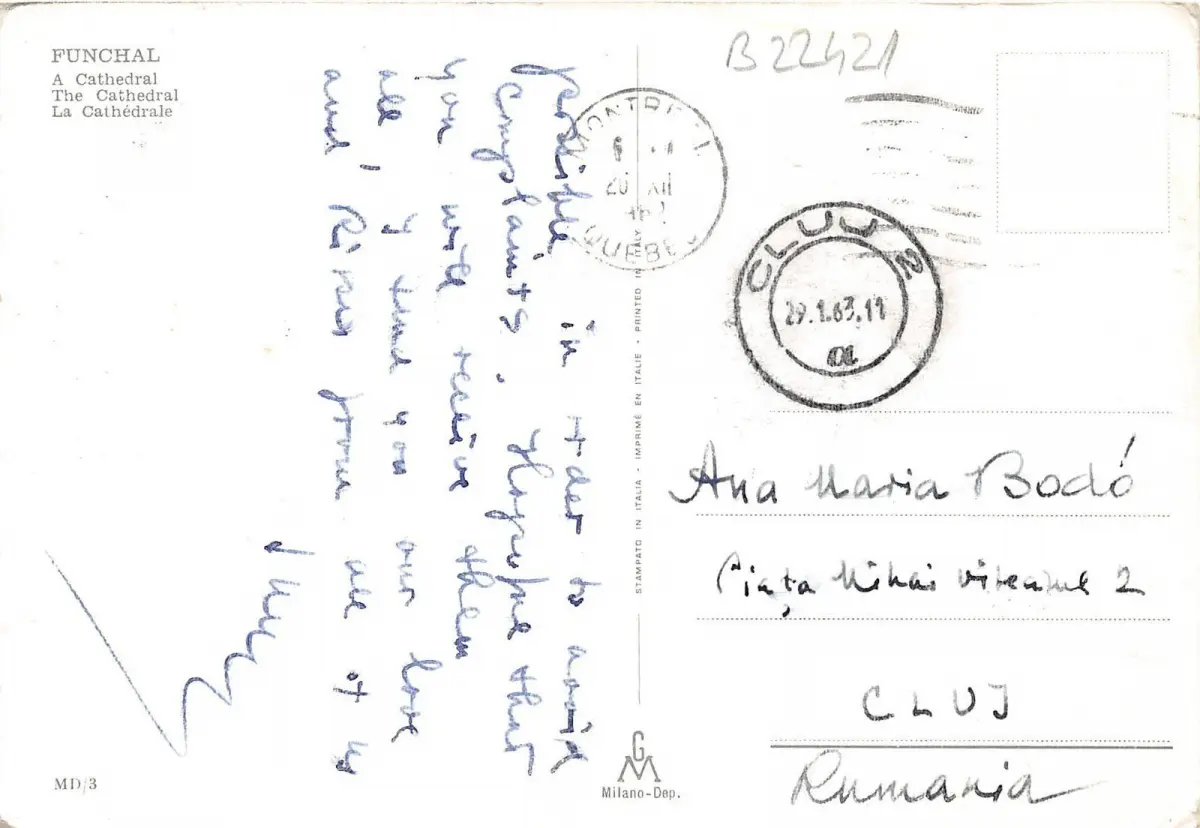 FUNCHAL
A Cathedral
The Cathedral
La Cathédrale
possible, in order to avoid
complaints. Hoping that
you will receive them
all I send you our love
and kisses from all of us
MD/3
STAMPATO IN ITALIA - IMPRIMÉ EN ITALIE - PRINTED IN ITALY
GM
Milano-Dep.
B22421
MONTREAL
20 XII
QUEBEC
CLUJ 2
29.1.63.11
Ana Maria Bodó
Piața Mihai Viteazul 2
CLUJ
Rumania